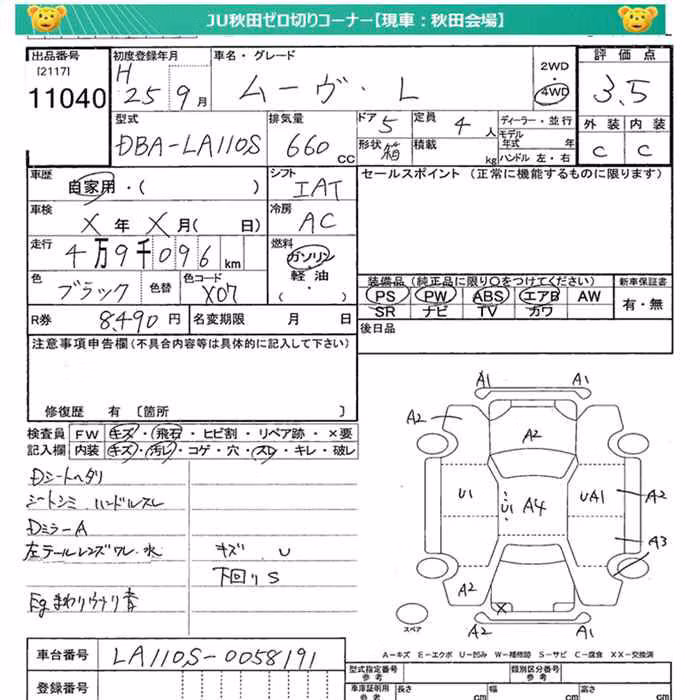 JU秋田ゼロ切りコーナー【現車：秋田会場】
出品番号 初度登録年月 車名・グレード 2WD 評価点
[2117] H ・
11040 25 9月 ムーヴ・L 4WD 3.5
型式 排気量 ドア 5 定員 4人 ディーラー・並行 外装 内装
モデル
DBA-LA110S 660 CC 形状 箱 積載 kg 年式 年 C C
ハンドル 左・右
車歴 自家用・( ) シフト IAT セールスポイント (正常に機能するものに限ります)
車検 X年 X月( 日) 冷房 AC
走行 4万9千096km 燃料 ガソリン・軽油・( )
色 ブラック 色替 色コード X07
装備品(純正品に限り〇をつけてください) 新車保証書
PS PW ABS エアB AW 有・無
SR ナビ TV カワ
R券 8,490円 名変期限 月 日 後日品
注意事項申告欄(不具合内容等は具体的に記入して下さい)
修復歴 有 [箇所 ]
検査員 FW キズ・飛石・ヒビ割・リペア跡・×要
記入欄 内装 キズ・汚レ・コゲ・穴・スレ・キレ・破レ
Dシートヘタリ
シートシミ ハンドルスレ
DミラーA
左テールレンズワレ・水 キズ U
下回りS
Egまわりウナリ音
A1 A1
A2
A2
U1 U1 A4 UA1 A2
A3
A2
X
スペア A2 A1
A-キズ E-エクボ U-凹み W-補修跡 S-サビ C-腐食 XX-交換済
車台番号 LA110S-0058191
登録番号
型式指定番号 参考 類別区分番号 参考
車庫証明用 参考 長さ cm 幅 cm 高さ cm